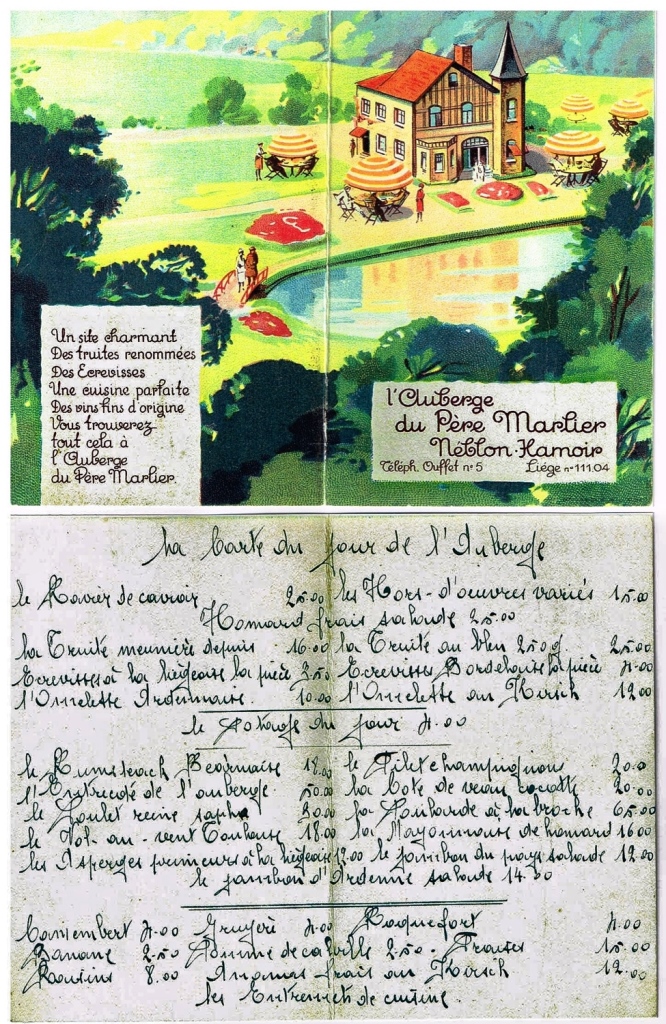 Un site charmant
Des truites renommées
Des Ecrevisses
Une cuisine parfaite
Des vins fins d'origine
Vous trouverez
tout cela à
l'Auberge
du Père Marlier.
l'Auberge
du Père Marlier
Néblon-Hamoir
Téléph. Ouffet n° 5 Liége n° 111.04
La Carte du jour de l'Auberge
le Ravier de caviar 25.00 les Hors-d'oeuvres variés 15.00
Homard frais salade 25.00
La Truite meunière depuis 16.00 La Truite au bleu 250 g. 25.00
Ecrevisses à la liégeoise la pièce 3.50 Ecrevisses Bordelaise la pièce 4.00
l'Omelette Ardennaise 10.00 l'Omelette au Kirsch 12.00
le Potage du jour 4.00
le Rumsteack Béarnaise 18.00 le Filet champignons
l'Entrecôte de l'auberge la Cote de veau cocotte 20.00
le Poulet reine la Poularde à la broche 65.00
le Vol-au-vent Toulouse 18.00 la Mayonnaise de homard 16.00
les Asperges primeurs à la liégeoise 12.00 le jambon du pays salade 12.00
le jambon d'Ardenne salade 14.00
Camembert 4.00 Gruyère 4.00 Roquefort 4.00
Banane 2.50 Pomme de calville 2.50 - Fraises 15.00
Raisins 8.00 Ananas frais au Kirsch 12.00
les Entremets de cuisine